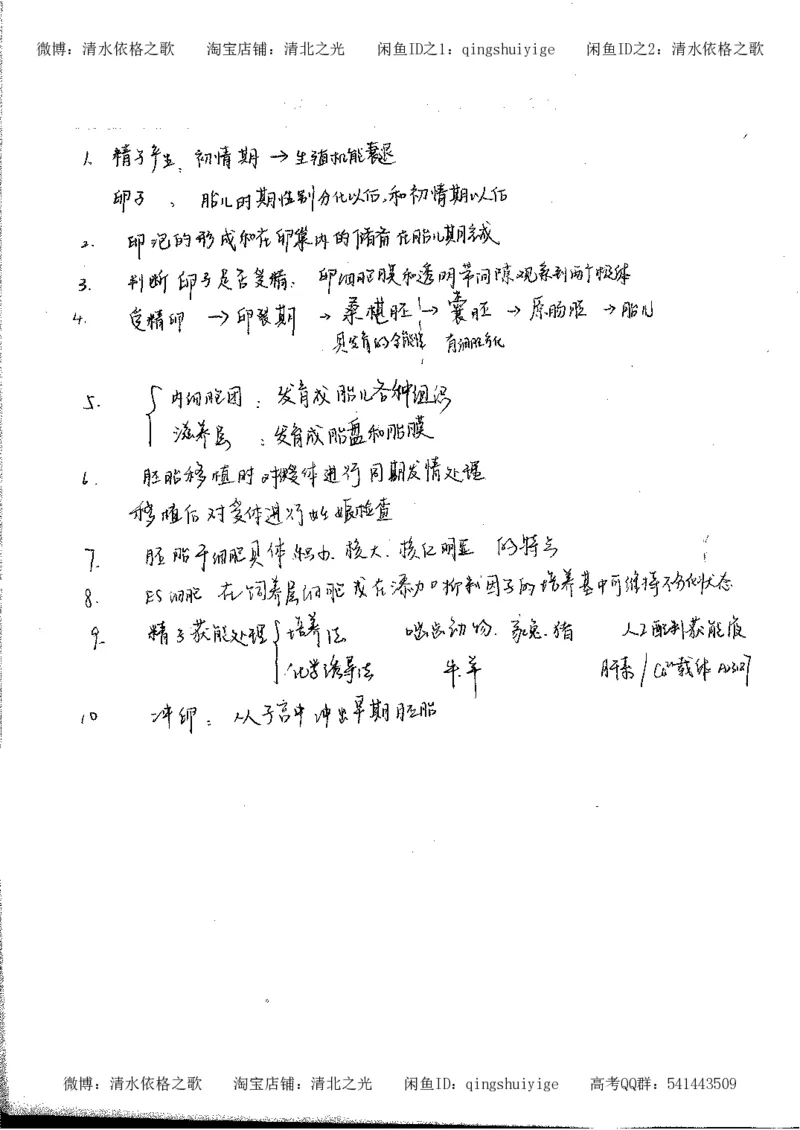 微博：清水依格之歌 淘宝店铺：清北之光 闲鱼ID之1：qingshuiyige 闲鱼ID之2：清水依格之歌
1. 精子产生：初情期 → 生殖机能衰退
卵子：胎儿时期性别分化以后，和初情期以后
2. 卵泡的形成和在卵巢内的储备在胎儿期完成
3. 判断卵子是否受精：卵细胞膜和透明带间隙观察到两个极体
4. 受精卵 → 卵裂期 → 桑椹胚 → 囊胚 → 原肠胚 → 胎儿
具发育的全能性 有细胞分化
5. { 内细胞团：发育成胎儿各种组织
滋养层：发育成胎盘和胎膜
6. 胚胎移植时对受体进行同期发情处理
移植后对受体进行妊娠检查
7. 胚胎干细胞具体积小、核大、核仁明显的特点
8. ES细胞在饲养层细胞或在添加抑制因子的培养基中可维持不分化状态
9. 精子获能处理 { 培养法 啮齿动物、家兔、猪 人工配制获能液
化学诱导法 牛.羊 肝素/Ca²⁺载体A23187
10 冲卵：从子宫中冲出早期胚胎
微博：清水依格之歌 淘宝店铺：清北之光 闲鱼ID：qingshuiyige 高考QQ群：541443509